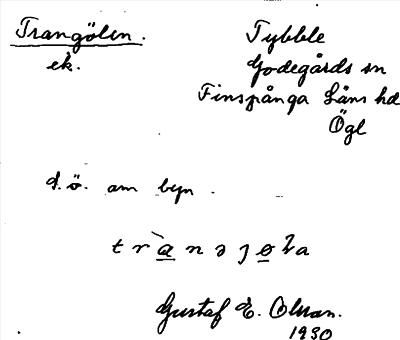 Trangölen.
ek.
Tybble
Godegårds sn
Finspånga Läns hd
Ögl
s.ö. om byn.
Gustaf E. Olsson.
1930